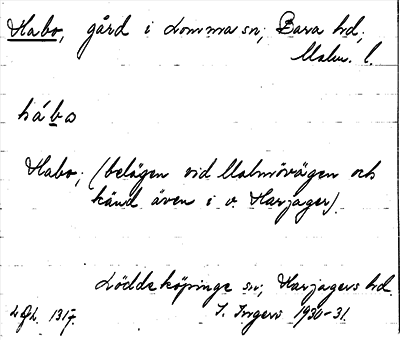 Habo, gård i Lomma sn; Bara hd,
Malm. l.
hábo
Habo; (belägen vid Malmövägen och
känd även i v. Harjager).
Löddeköpinge sn; Harjagers hd.
I. Ingers 1930-31.